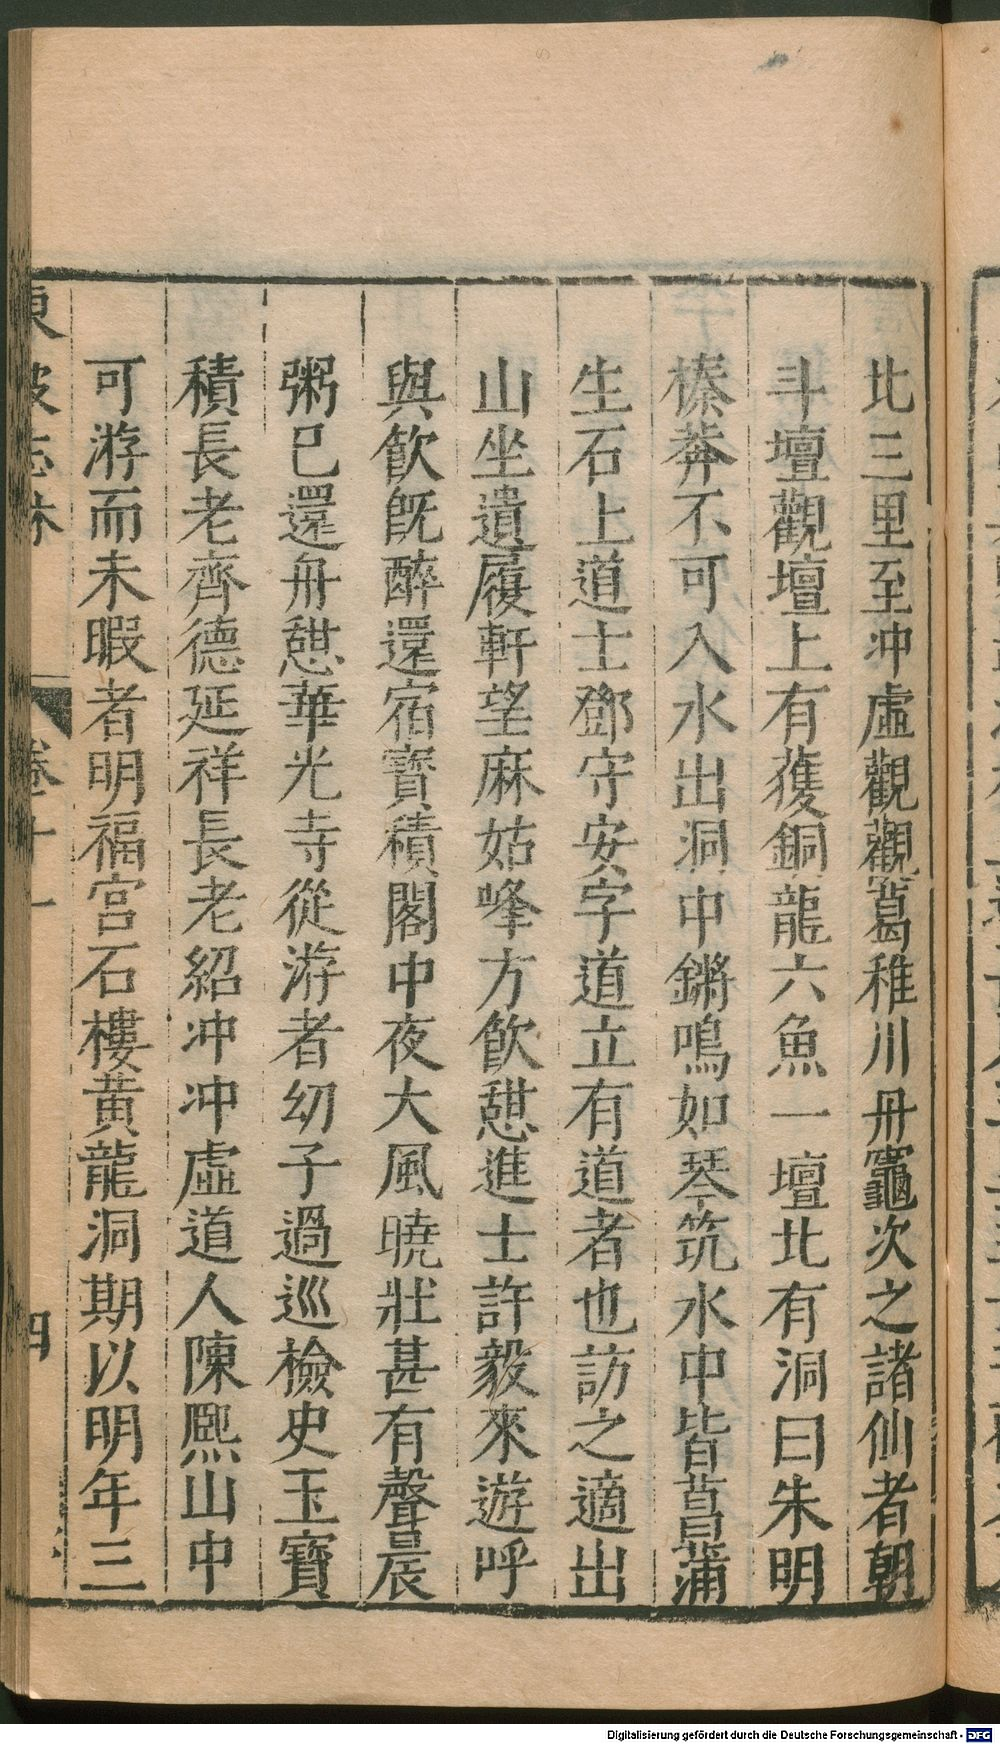 北三里至冲虛觀觀葛稚川丹竈次之諸仙者朝
斗壇觀壇上有獲銅龍六魚一壇北有洞曰朱明
榛莽不可入水出洞中鏘鳴如琴筑水中皆菖蒲
生石上道士鄧守安字道立有道者也訪之適出
山坐遺履軒望麻姑峰方飲憇進士許毅來遊呼
與飲旣醉還宿寶積閣中夜大風曉壯甚有聲晨
粥已還舟憇華光寺從游者幼子過巡檢史玉寶
積長老齊德延祥長老紹冲冲虛道人陳熈山中
可游而未暇者明福宮石樓黄龍洞期以明年三
東坡志林
卷十一
四
Digitalisierung gefördert durch die Deutsche Forschungsgemeinschaft - DFG